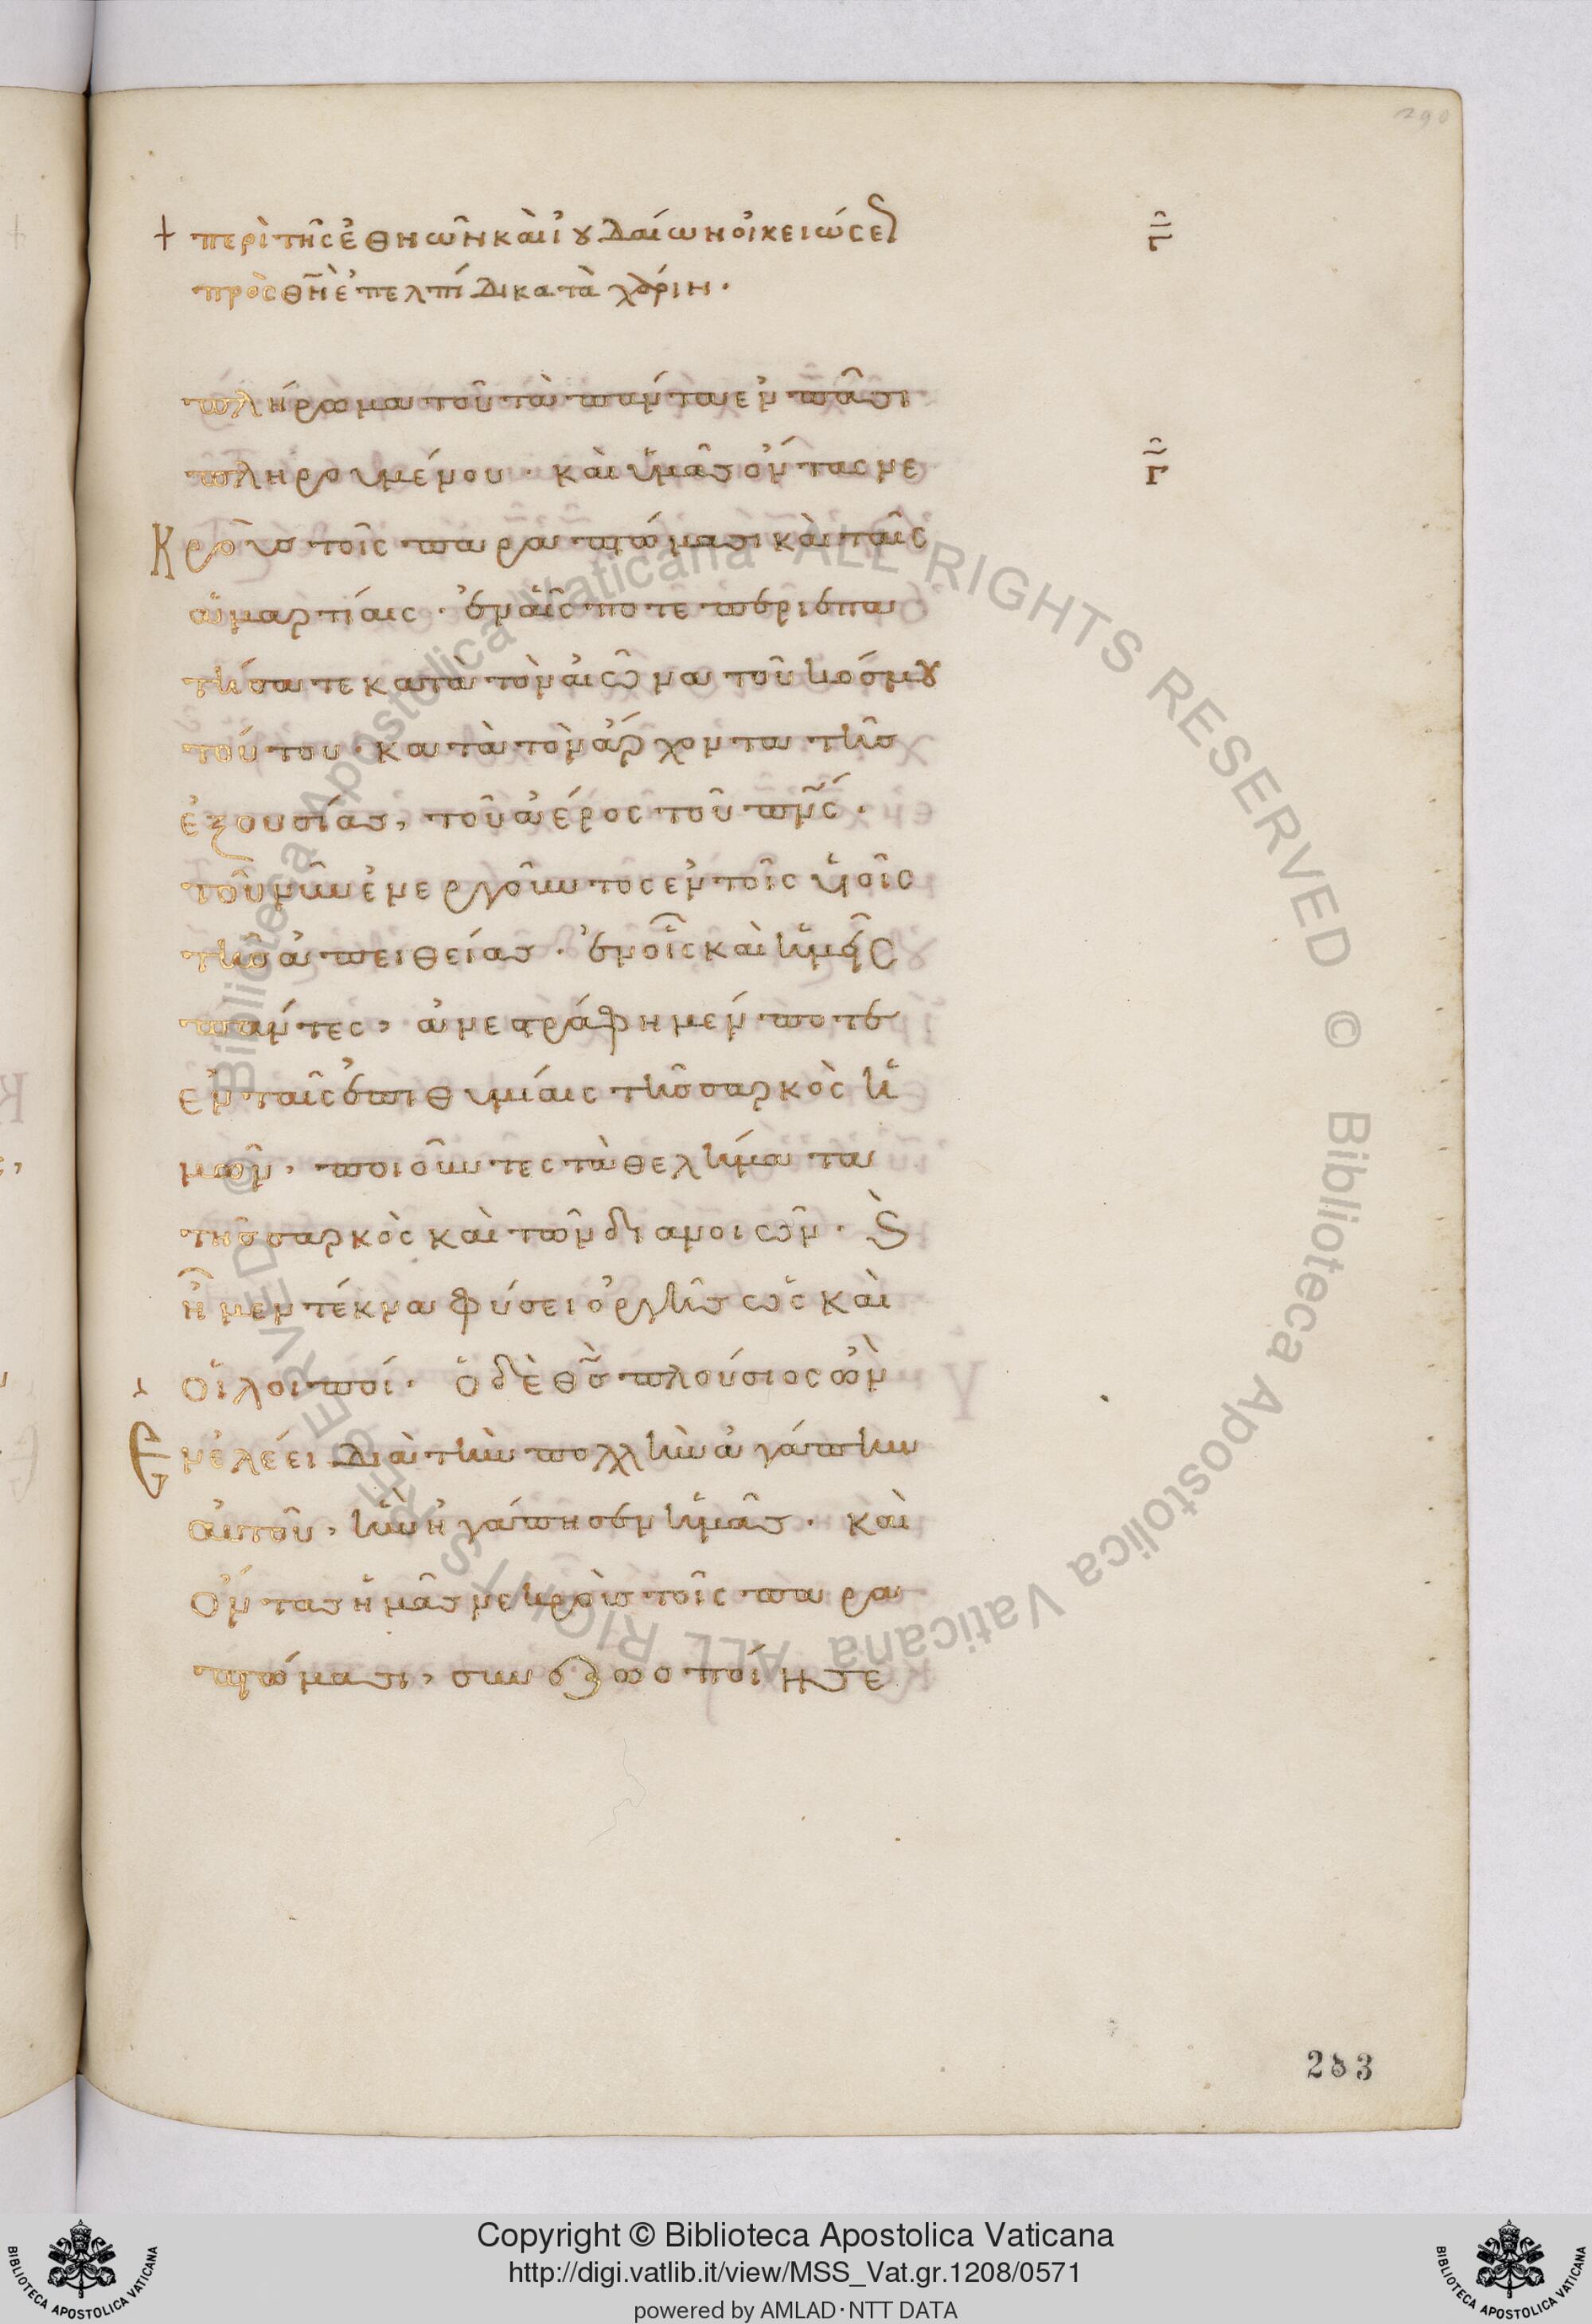 290
+ περὶ τῆς ἐθνῶν καὶ ἰουδαίων οἰκειώσε Γ
πρὸς θν ἐπ ελπίδι κατὰ χριν·
πλήρωμα τοῦ τὰ πάντα ἐν πᾶσι
πληρουμένου· καὶ ὑμᾶς ὄντας νε Γ
Κροὺς τοῖς παραπτώμασι καὶ ταῖς
ἁμαρτίαις· ἐν αἷς ποτὲ περιεπα
τήσατε κατὰ τὸν αἰῶνα τοῦ κόσμου
τούτου· κατὰ τὸν ἄρχοντα τῆς
ἐξουσίας, τοῦ ἀέρος τοῦ πνς·
τοῦ νῦν ἐνεργοῦντος ἐν τοῖς υἱοῖς
τῆς ἀπειθείας· ἐν οἷς καὶ ἡμεῖς
πάντες, ἀνεστράφημέν ποτε
ἐν ταῖς ἐπιθυμίαις τῆς σαρκὸς ἡ
μῶν, ποιοῦντες τὰ θελήματα
τῆς σαρκὸς καὶ τῶν διανοιῶν· Ϗ
ἦμεν τέκνα φύσει ὀργῆς ὡς καὶ
οἱ λοιποί· ὁ δὲ θς πλούσιος ὢν
Ἐν ἐλέει διὰ τὴν πολλὴν ἀγάπην
αὐτοῦ, ἣν ἠγάπησεν ἡμᾶς· καὶ
ὄντας ἡμᾶς νεκροὺς τοῖς παρα
πτώμασι, συνεζωοποίησε
283
© Biblioteca Apostolica Vaticana ALL RIGHTS RESERVED © Biblioteca Apostolica Vaticana ALL RIGHTS RESERVED
BIBLIOTECA APOSTOLICA VATICANA
Copyright © Biblioteca Apostolica Vaticana
http://digi.vatlib.it/view/MSS_Vat.gr.1208/0571
powered by AMLAD·NTT DATA
BIBLIOTECA APOSTOLICA VATICANA